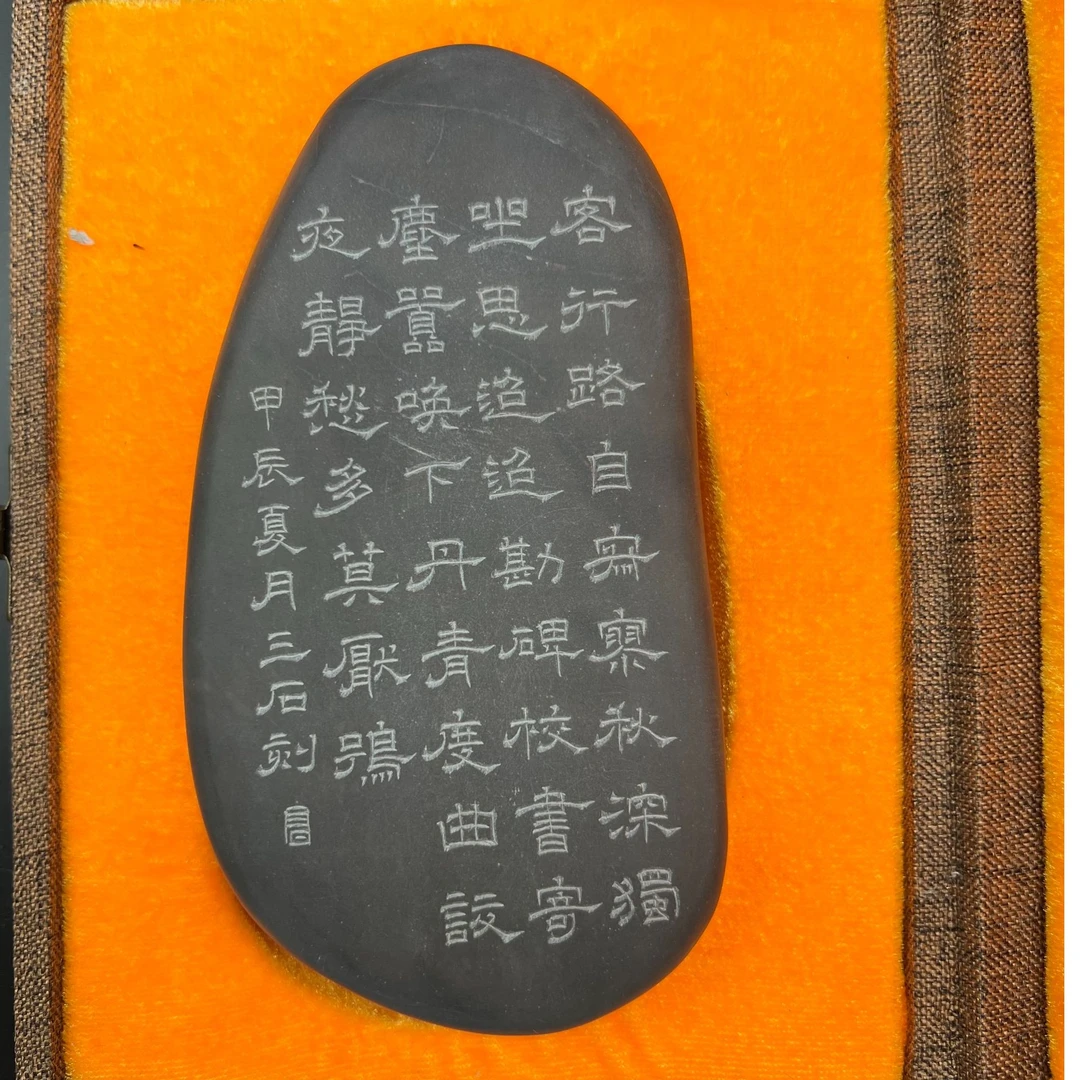 客行路自寂寞秋深獨
坐思迢迢勘碑校書寄
塵囂喚下丹青度曲設
夜靜愁多莫厭鴞
甲辰夏月三石刻